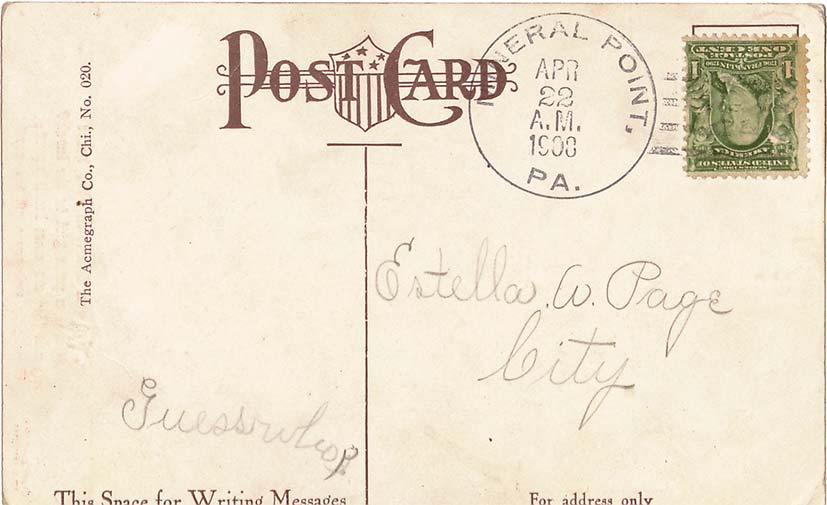 POST CARD
The Acmegraph Co., Chi., No. 020.
MINERAL POINT,
APR
22
A.M.
1908
PA.
1 POSTAGE 1
ONE CENT
1706 FRANKLIN 1790
UNITED STATES OF
AMERICA
Estella W. Page
City
Guess who?
This Space for Writing Messages
For address only